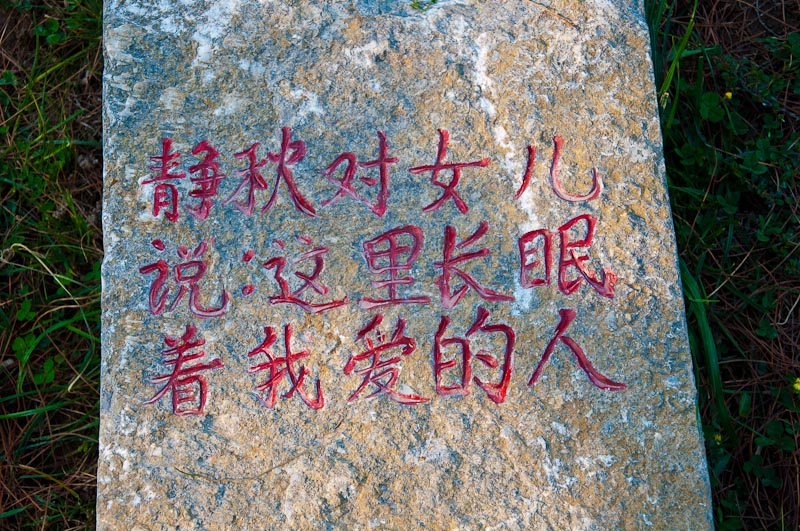 静秋对女儿
说:这里长眠
着我爱的人